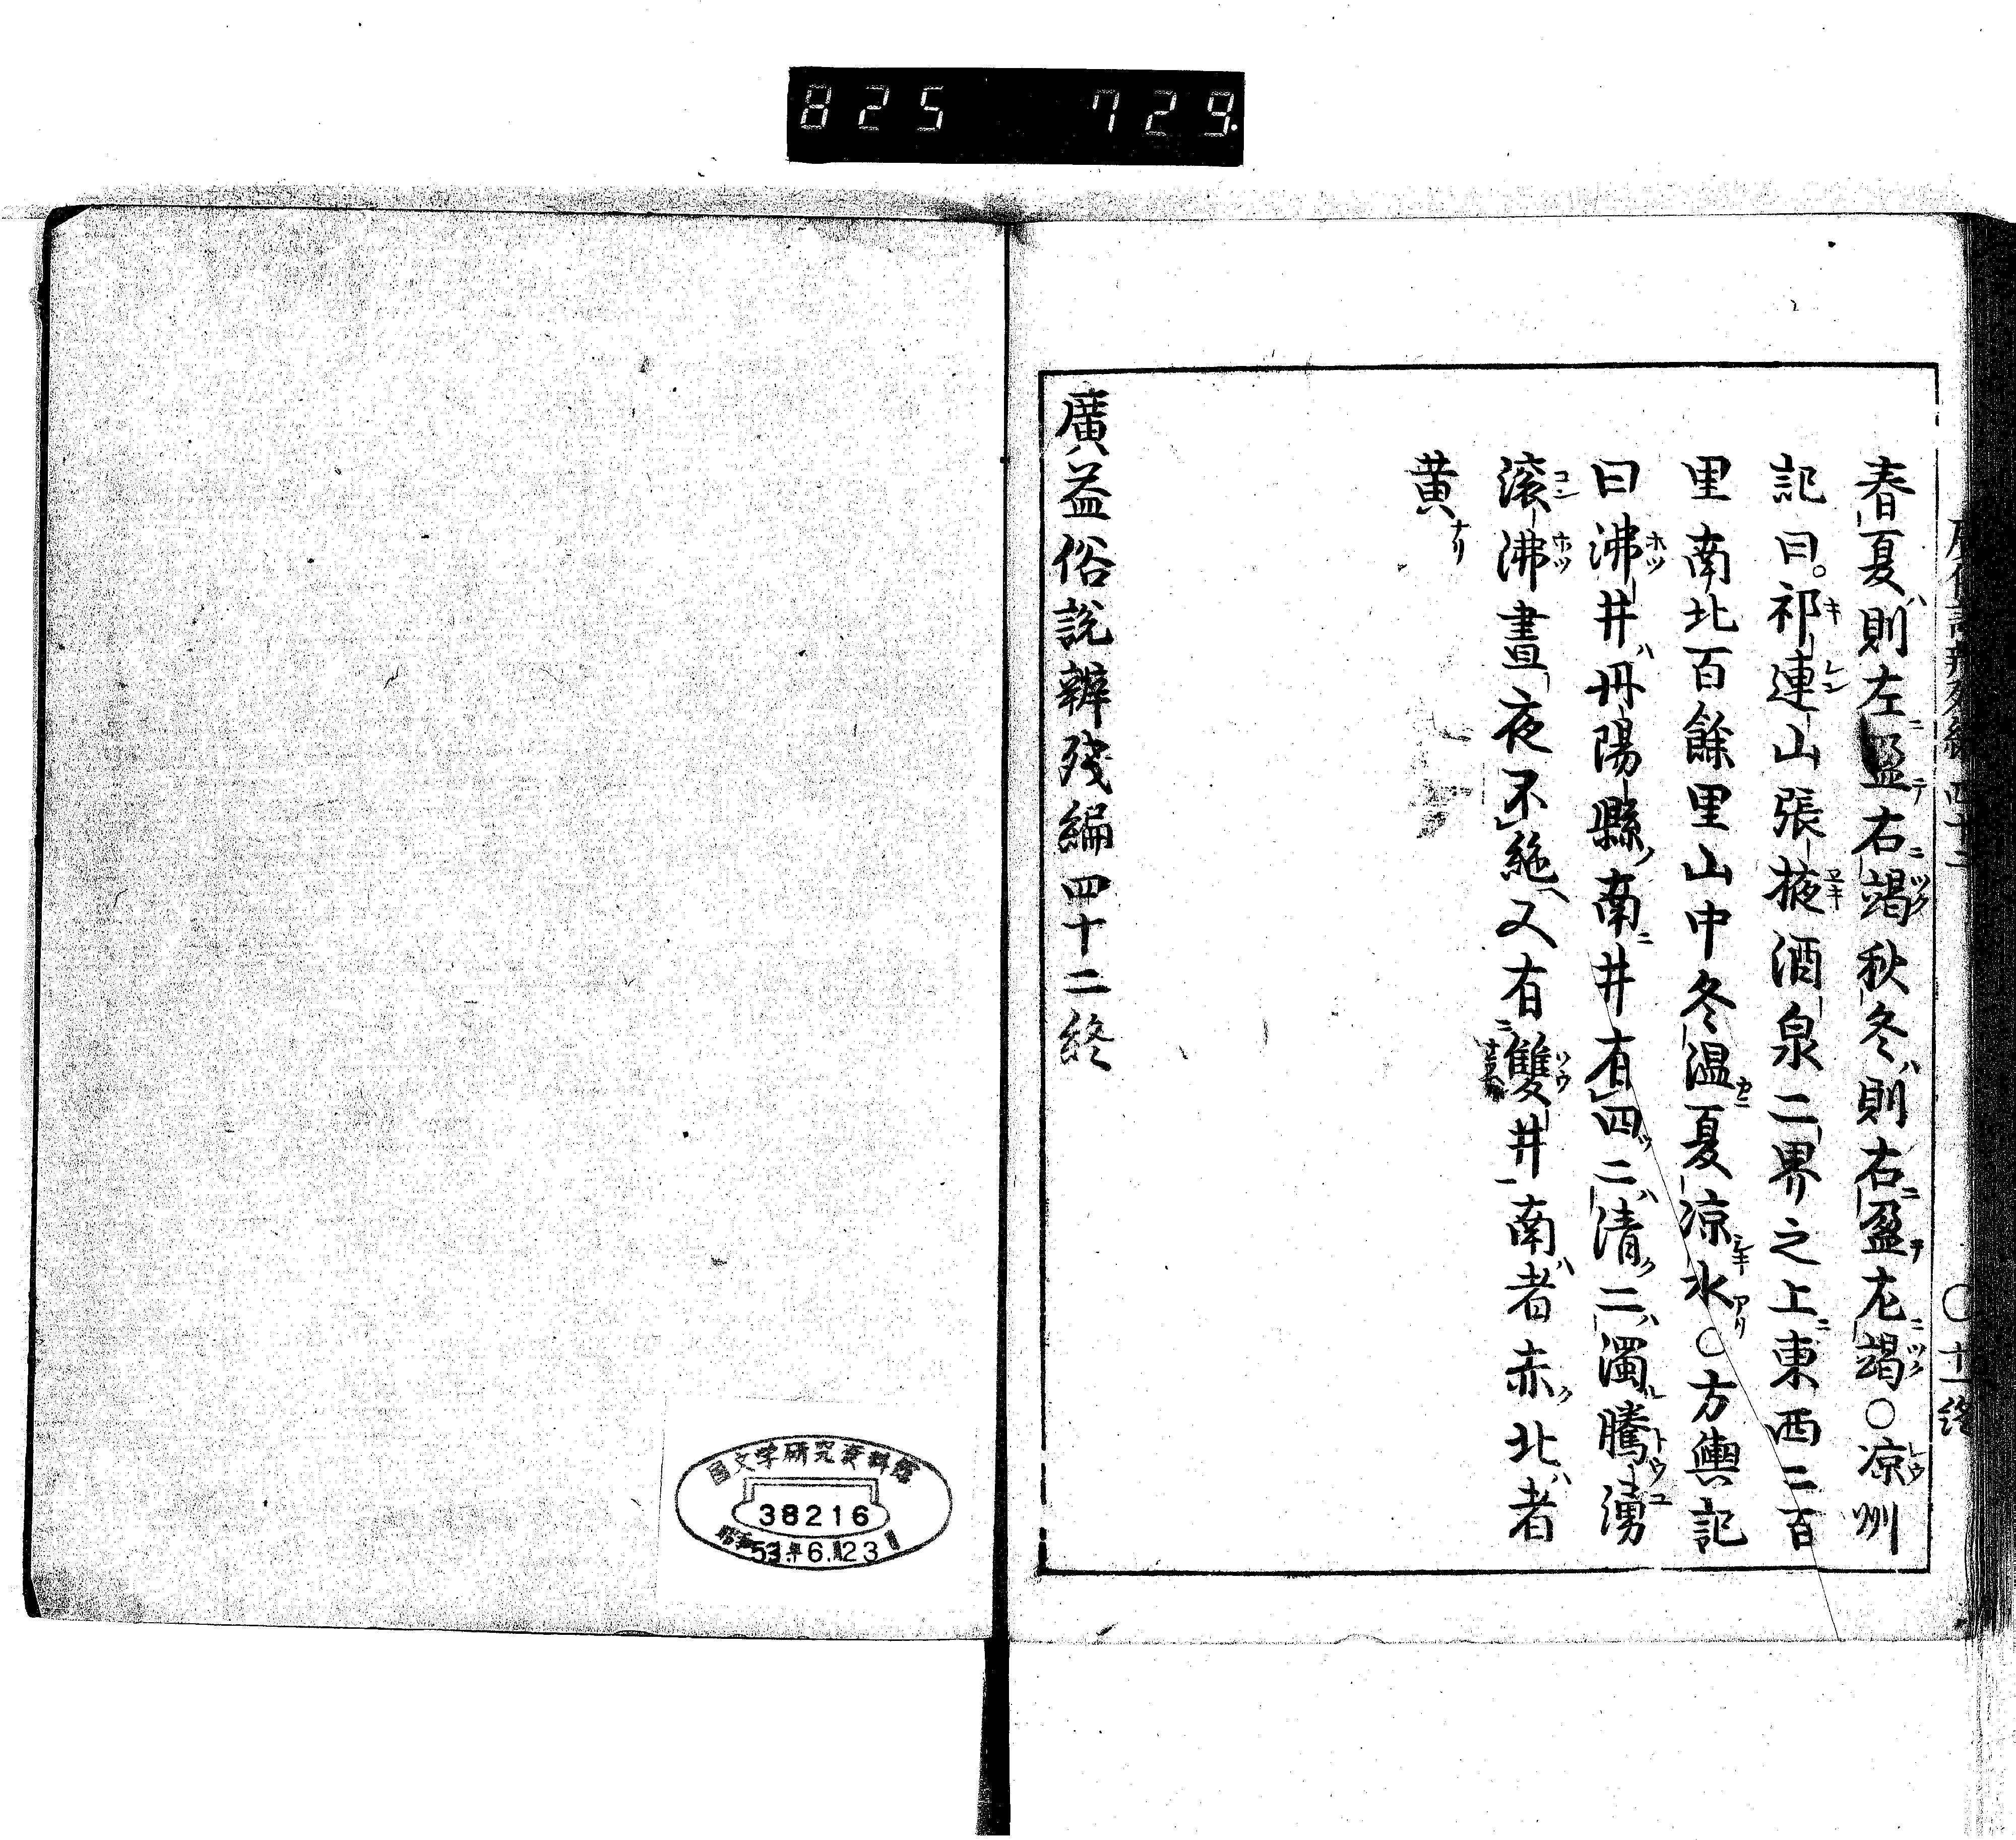 825 729.
春夏則左盈右竭秋冬則右盈左竭○凉州
記曰祁連山張掖酒泉二界之上東西二百
里南北百餘里山中冬温夏凉水○方輿記
曰沸井丹陽縣南井有四二清二濁騰湧
滚沸晝夜不絶又有雙井南者赤北者
黄ナリ
廣益俗説辨残編四十二終
国文学研究資料館
38216
昭和53年6月23日